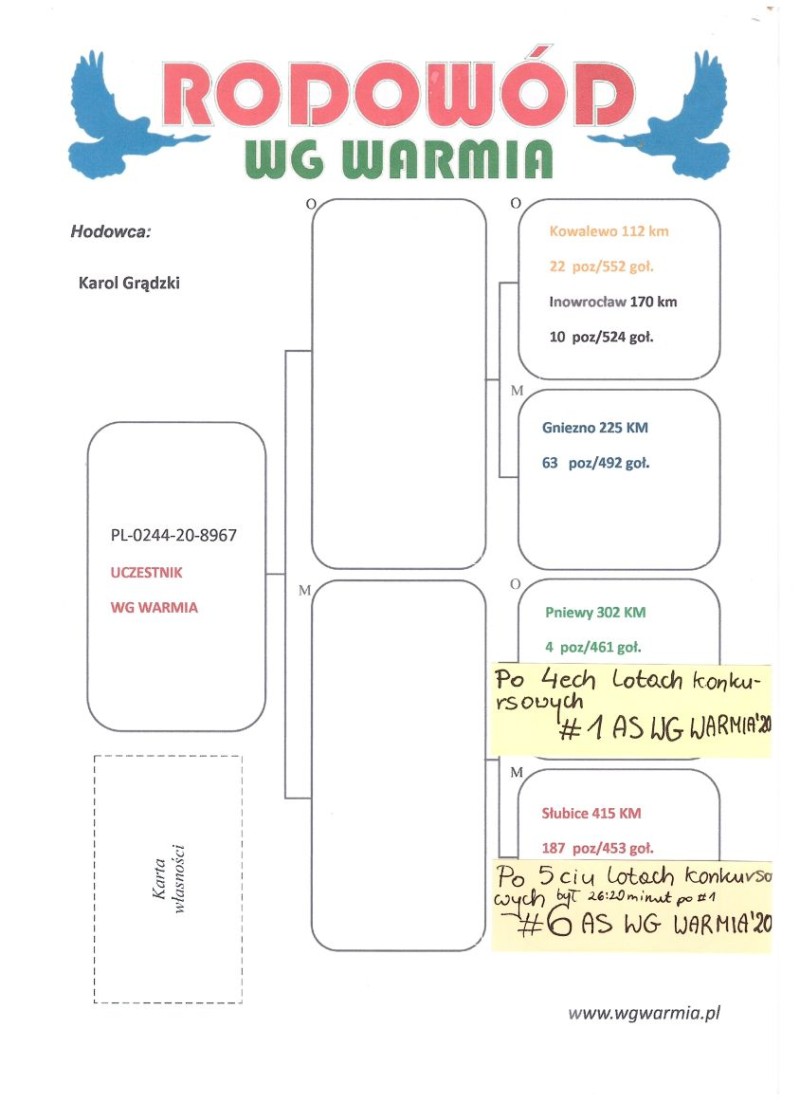 RODOWÓD
WG WARMIA
Hodowca:
Karol Grądzki
PL-0244-20-8967
UCZESTNIK
WG WARMIA
Karta
własności
O
M
O
Kowalewo 112 km
22 poz/552 goł.
Inowrocław 170 km
10 poz/524 goł.
M
Gniezno 225 KM
63 poz/492 goł.
O
Pniewy 302 KM
4 poz/461 goł.
Po 4ech Lotach konku-
rsowych
#1 AS WG WARMIA'20
M
Słubice 415 KM
187 poz/453 goł.
Po 5ciu Lotach konkurso
wych był 26:20 minut po #1
#6 AS WG WARMIA'20
www.wgwarmia.pl